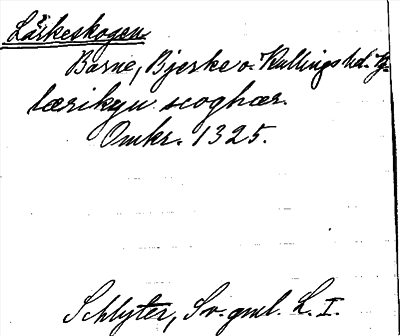 Lärkeskogen
Barne, Bjerke o. Kullings hd.
lærikyu scoghær.
Omkr. 1325.
Schlyter, Sv. gml. L. I.